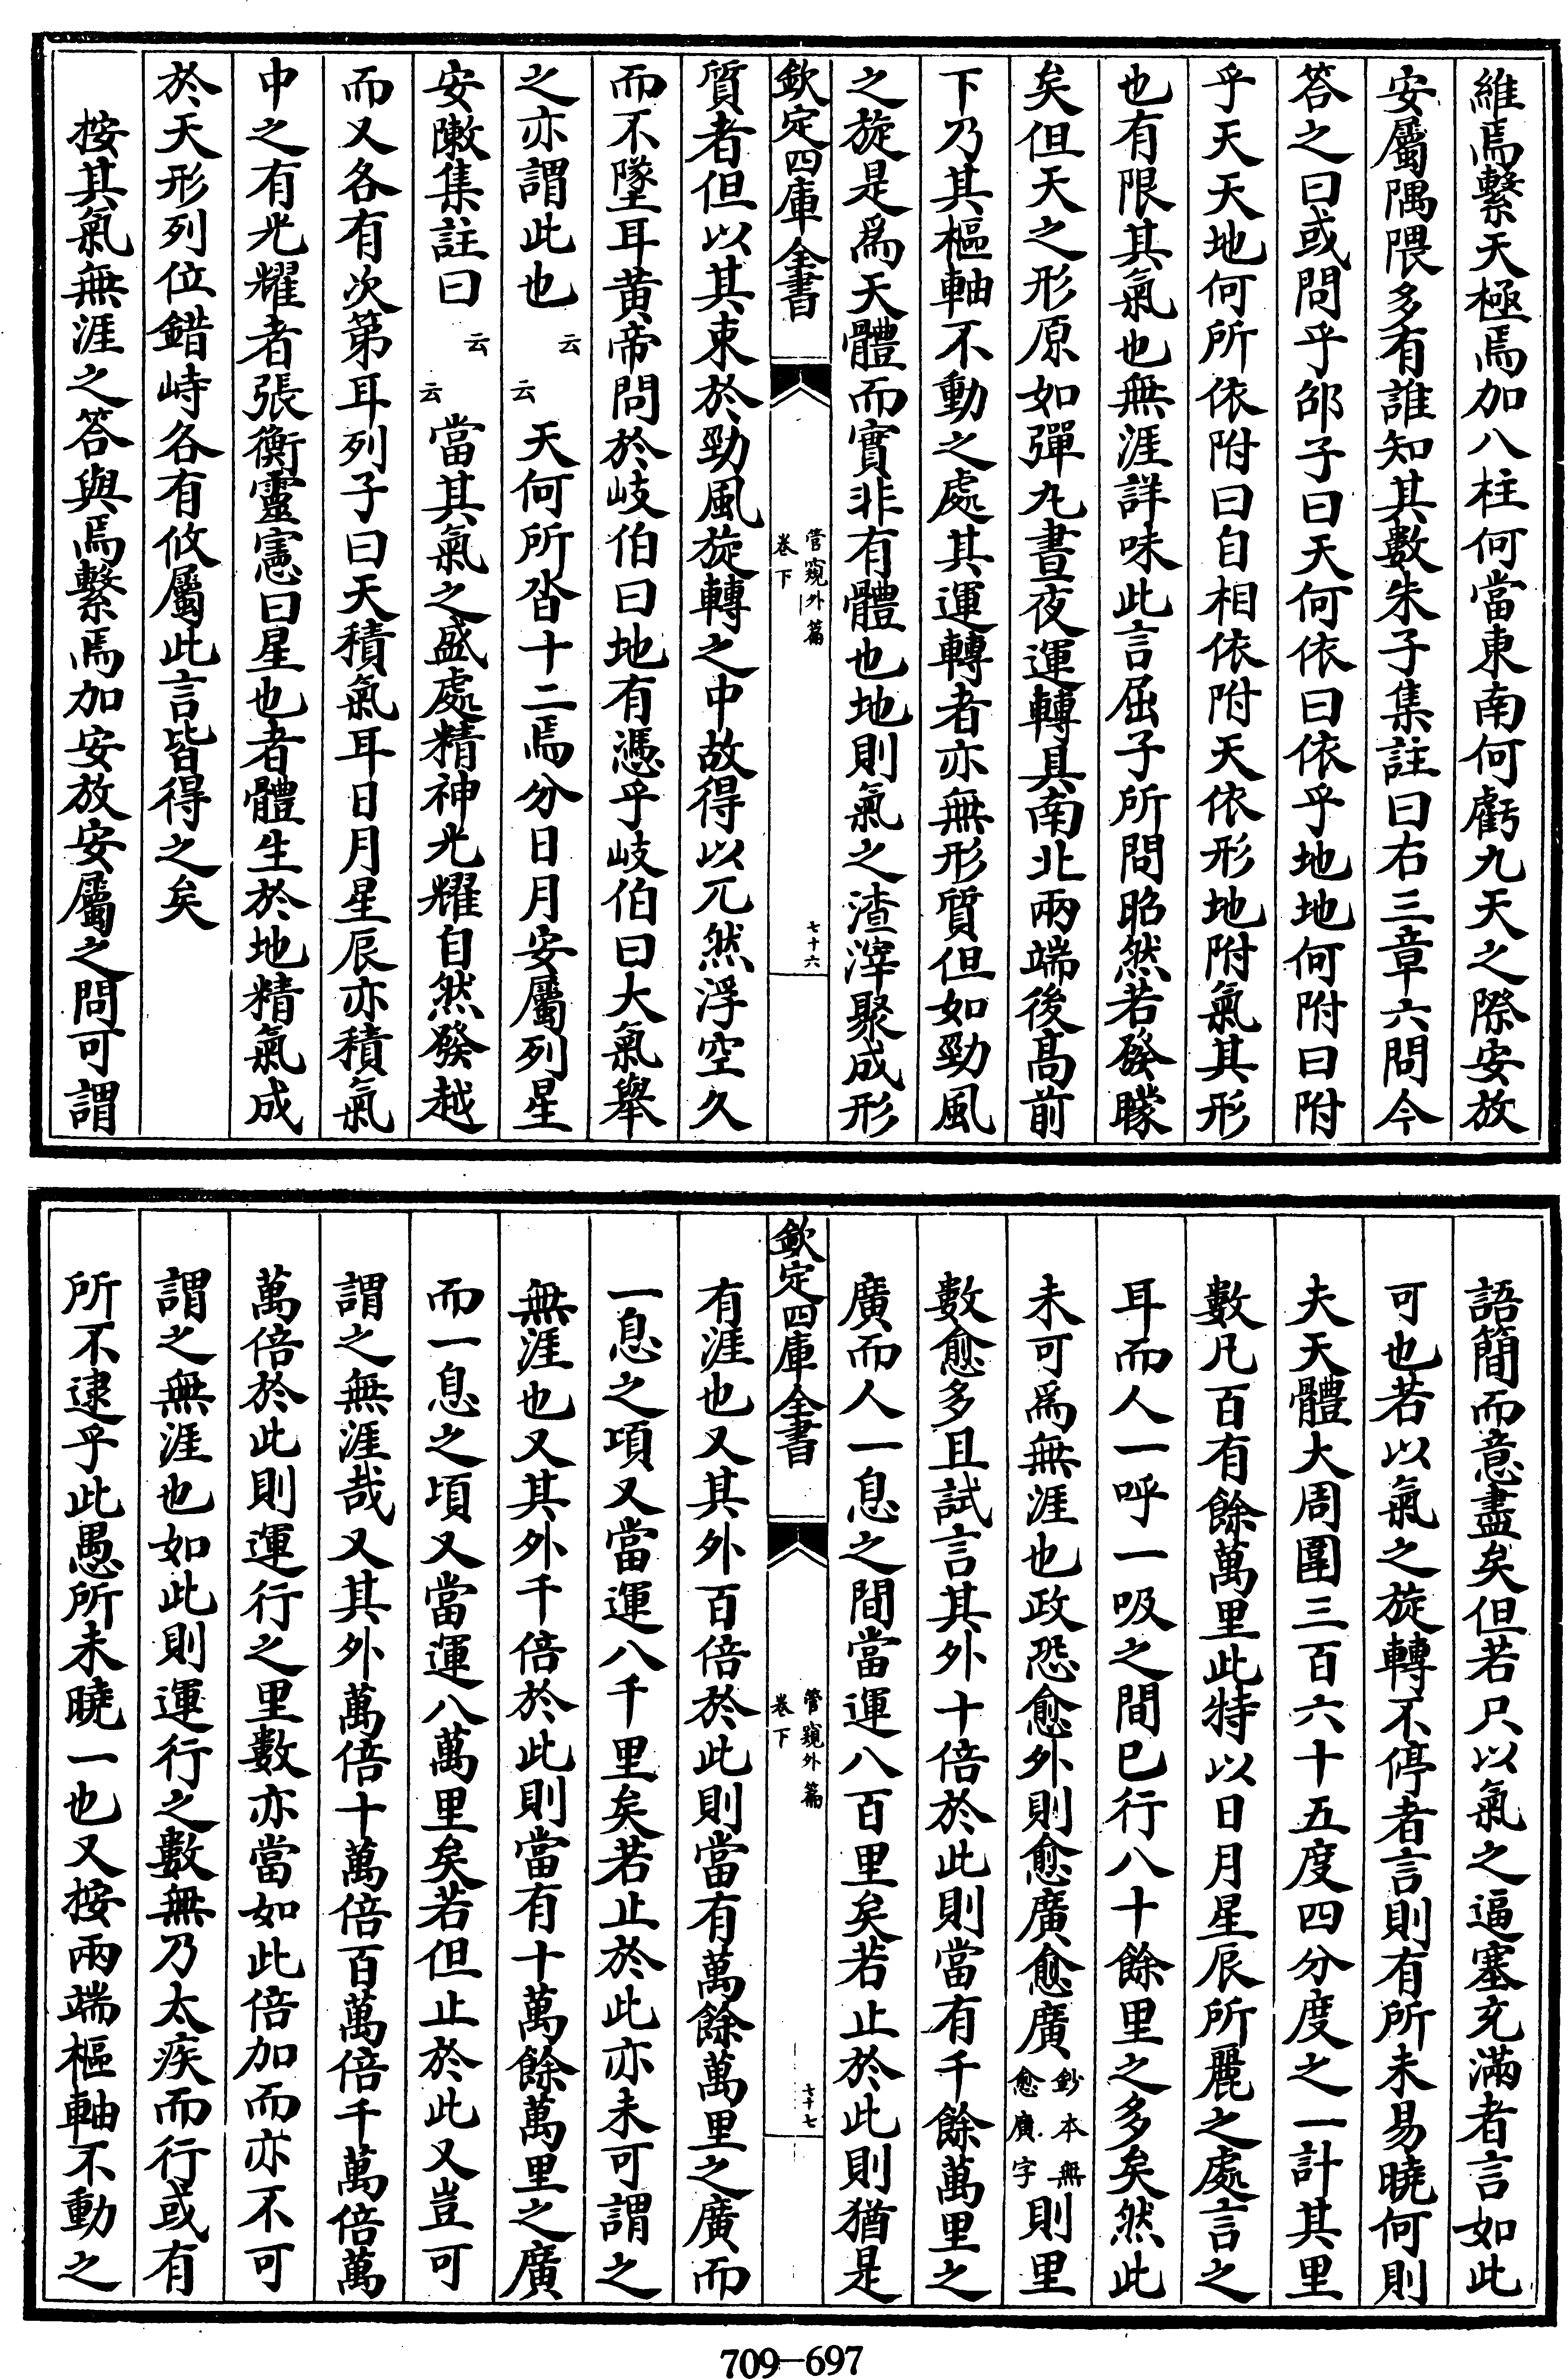 維焉繫天極焉加八柱何當東南何虧九天之際安放
安屬隅隈多有誰知其數朱子集註曰右三章六問今
答之曰或問乎邵子曰天何依曰依乎地地何附曰附
乎天天地何所依附曰自相依附天依形地附氣其形
也有限其氣也無涯詳味此言屈子所問昭然若發矇
矣但天之形原如彈丸晝夜運轉具南北兩端後高前
下乃其樞軸不動之處其運轉者亦無形質但如勁風
之旋是爲天體而實非有體也地則氣之渣滓聚成形
欽定四庫全書
管窺外篇
卷下
七十六
質者但以其束於勁風旋轉之中故得以兀然浮空久
而不墜耳黄帝問於岐伯曰地有憑乎岐伯曰大氣舉
之亦謂此也云云天何所沓十二焉分日月安屬列星
安敶集註曰云云當其氣之盛處精神光耀自然發越
而又各有次第耳列子曰天積氣耳日月星辰亦積氣
中之有光耀者張衡靈憲曰星也者體生於地精氣成
於天形列位錯峙各有攸屬此言皆得之矣
按其氣無涯之答與焉繫焉加安放安屬之問可謂
語簡而意盡矣但若只以氣之逼塞充滿者言如此
可也若以氣之旋轉不停者言則有所未易曉何則
夫天體大周圍三百六十五度四分度之一計其里
數凡百有餘萬里此特以日月星辰所麗之處言之
耳而人一呼一吸之間已行八十餘里之多矣然此
未可爲無涯也政恐愈外則愈廣愈廣鈔本無愈廣字則里
數愈多且試言其外十倍於此則當有千餘萬里之
廣而人一息之間當運八百里矣若止於此則猶是
欽定四庫全書
管窺外篇
卷下
七十七
有涯也又其外百倍於此則當有萬餘萬里之廣而
一息之項又當運八千里矣若止於此亦未可謂之
無涯也又其外千倍於此則當有十萬餘萬里之廣
而一息之頃又當運八萬里矣若但止於此又豈可
謂之無涯哉又其外萬倍十萬倍百萬倍千萬倍萬
萬倍於此則運行之里數亦當如此倍加而亦不可
謂之無涯也如此則運行之數無乃太疾而行或有
所不逮乎此愚所未曉一也又按兩端樞軸不動之
709-697